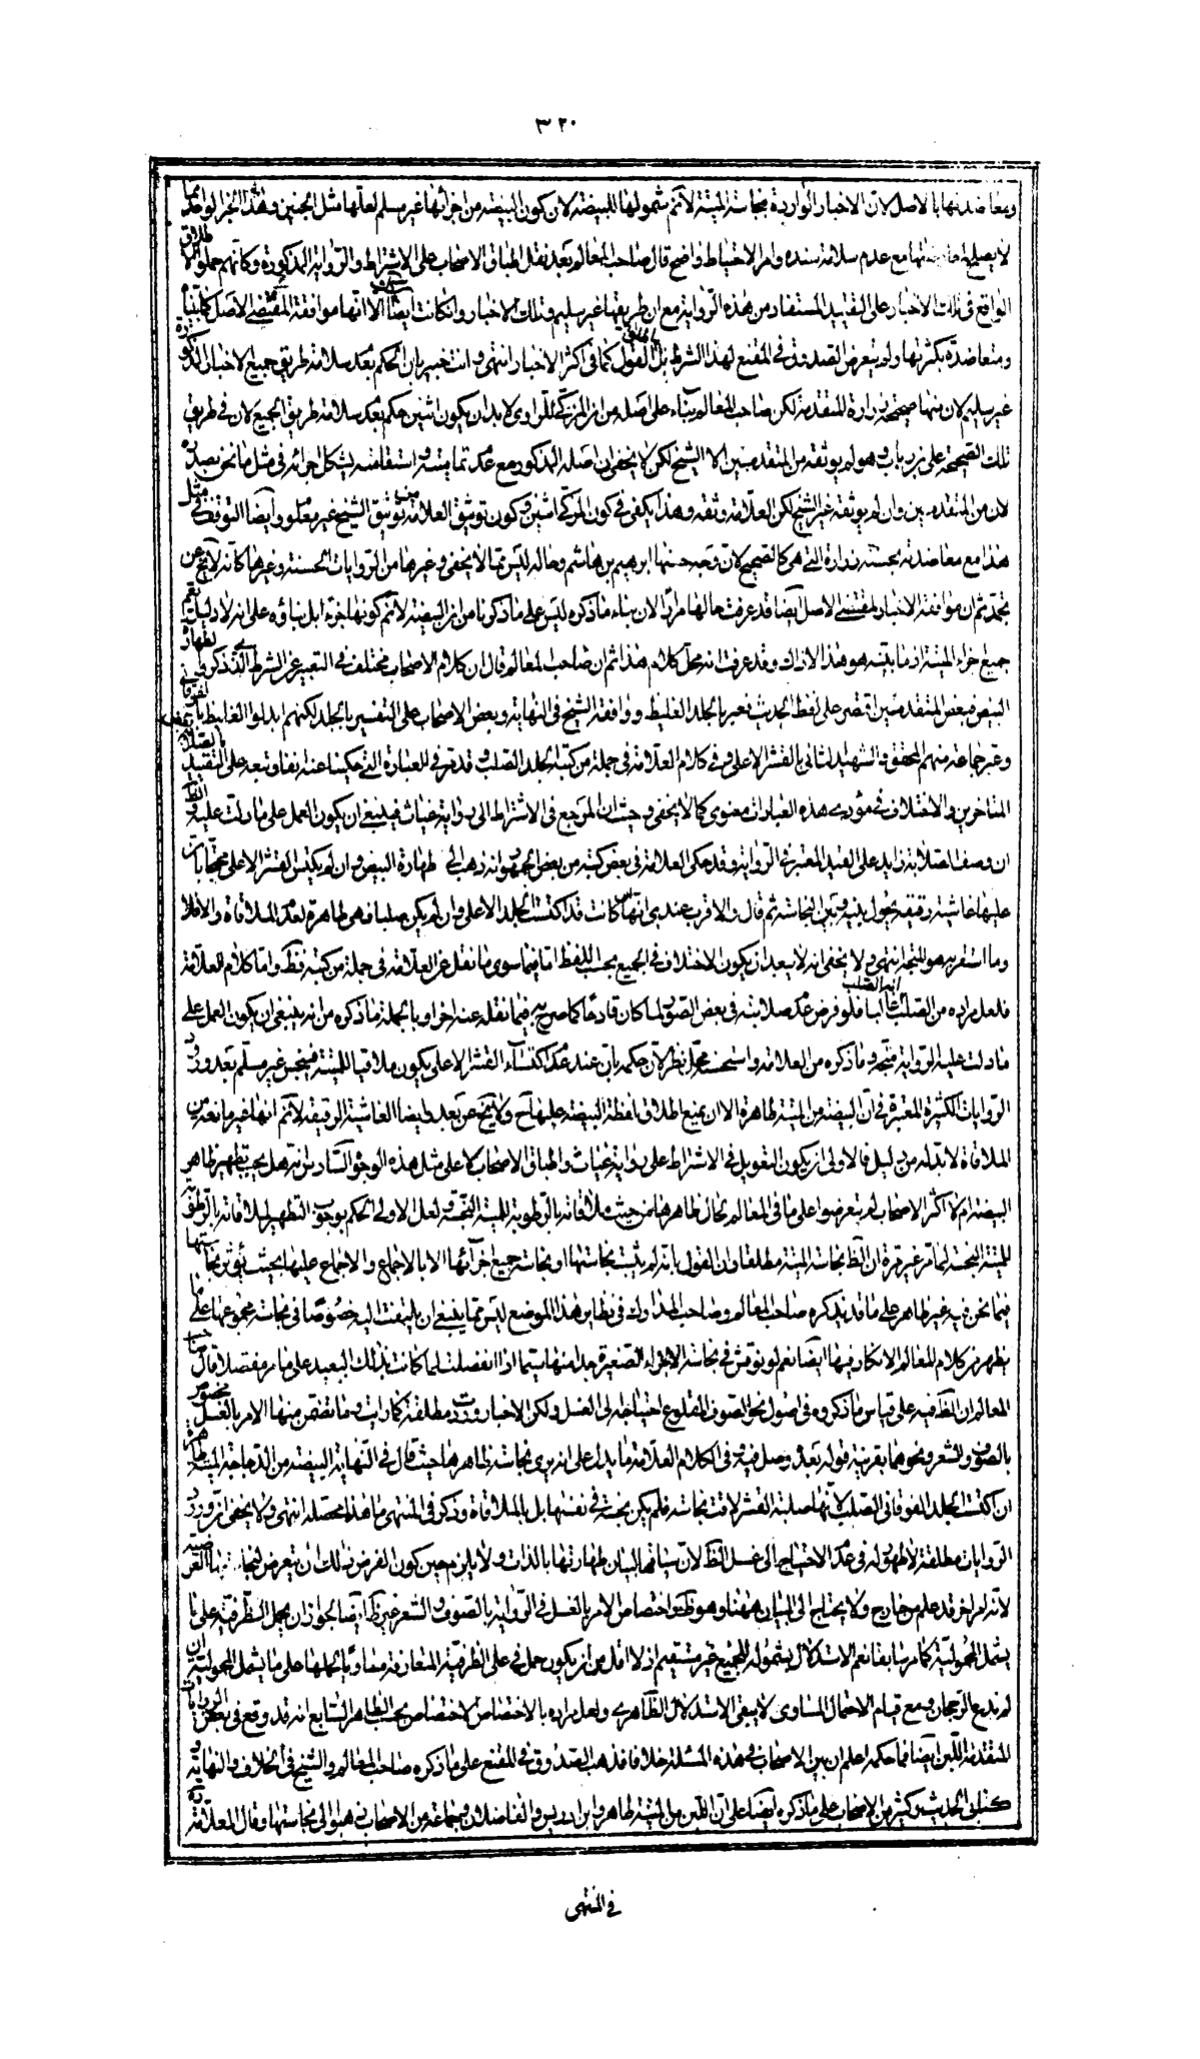 ٣٢٠
ومعاضدتها بالاصل لان الاخبار الواردة بنجاسة الميتة لا نم شمولها للبيضة لان كون البيضة من اجزائها غير مسلم لعلها مثل الجنين وهذا الخبر الواحد
لا يصلح مع عدم سلامة سنده وامر الاحتياط واضح قال صاحب المعالم بعد نقل اطباق الاصحاب على الاشتراط والرواية المذكورة وكانهم حملوا اطلاق
الواقع فى تلك الاخبار على التقييد المستفاد من هذه الرواية مع ان طريقها غير سليم وتلك الاخبار وان كانت ايضا الا انها موافقة لمقتضى الاصل كما بينا
ومتعاضدة بكثرتها ولم يتعرض الصدوق فى المقنع لهذا الشرط بل القول كما فى اكثر الاخبار انتهى وانت خبير بان الحكم بعدم سلامة طريق جميع الاخبار المذكورة
غير سليم لان منها صحيحة زرارة المتقدمة لكن صاحب المعالم بناء على اصله من ان المزكى للراوى لا بد ان يكون اثنين حكم بعدم سلامة طريق الجميع لان فى طريق
تلك الصحيحة على بن رياب وهو لم يوثقه من المتقدمين الا الشيخ لكن لا يخفى ان اصله المذكور مع عدم تماميته واستقامته يشكل اجرائه فى مثل ما نحن بصدده
لان من المتقدمين وان لم يوثقه غير الشيخ لكن العلامة وثقه وهذا يكفى فى كون المزكى اثنين وكون توثيق العلامة من توثيق الشيخ غير معلوم وايضا التوقف فى مثل
هذا مع معاضدته بحسنة زرارة التى هى كالصحيح لان وجه حسنها ابرهيم بن هاشم وحاله ليس مما لا يخفى وغيرها من الروايات الحسنة وغيرها كانه لا يخ عن
جميع اجزاء الميتة اذ ما بينه هو هذا الاذاك وقد عرفت انه محل كلام هذا ثم ان صاحب المعالم قال ان كلام الاصحاب مختلف فى التعبير عن الشرط الذى ذكروه لطهارة
البيض فبعض المتقدمين اقتصر على لفظ الحديث فعبر بالجلد الغليظ ووافقه الشيخ فى النهاية وبعض الاصحاب على التفسير بالجلد لكنهم ابدلوا الغليظ بالفوقانى
وعبر جماعة منهم المحقق والشهيد الثانى بالقشر الاعلى وفى كلام العلامة فى جملة من كتبه الجلد الصلب وقد مر فى العبارة التى حكيناها عنه انفا وتبعه على التقييد بالصلابة بعض
المتاخرين والاختلاف فى مؤدى هذه العبارات معنوى كما لا يخفى وحيث ان المرجع فى الاشتراط الى رواية غياث فينبغى ان يكون العمل على ما دلت عليه والظ
ان وصف الصلابة زايد على القيد المعتبر فى الرواية وقد حكى العلامة فى بعض كتبه عن بعض الجمهور انه ذهب الى طهارة البيض وان لم يكتس القشر الاعلى محتجا بان
عليها غاشية رقيقة تحول بينه وبين النجاسة ثم قال والاقرب عندى انها ان كانت قد اكتست الجلد الاعلى وان لم يكن صلبا فهى طاهرة لعدم الملاقاة والا فلا
وما استقر به هو المتجه انتهى ولا يخفى انه لا يبعد ان يكون الاختلاف فى الجميع بحسب اللفظ اما فيما سوى ما نقل عن العلامة فى جملة من كتبه فظ واما كلام العلامة
فلعل مراده من الصلب انه الصلب غالبا فلو فرض عدم صلابته فى بعض الصور لما كان قادحا كما صرح به فيما نقله عنه اخرا وبالجملة ما ذكره من انه ينبغى ان يكون العمل على
ما دلت عليه الرواية متجه وما ذكره من العلامة واستحسنه محل نظر لان حكمه بان عند عدم اكتساء القشر الاعلى يكون ملاقيا للميتة فينجس غير مسلم بعد ورود
الروايات الكثيرة المعتبرة فى ان البيضة من الميتة طاهرة الا ان يمنع اطلاق لفظة البيضة عليها ح ولا يخ عن بعد وايضا الغاشية الرقيقة لا نم انها غير مانعة من
الملاقاة لا بد له من دليل فالاولى ان يكون التعويل فى الاشتراط على رواية غياث واطباق الاصحاب لا على مثل هذه الوجوه السادس انه هل يجب تطهير ظاهر
البيضة ام لا اكثر الاصحاب لم يتعرضوا على ما فى المعالم لحال ظاهرها من حيث ملاقاته بالرطوبة للميتة النجسة ولعل الاولى الحكم بوجوب التطهير لملاقاته بالرطوبة
للميتة النجسة لما مر غير مرة ان الظ نجاسة الميتة مطلقا وان القول بانه لم يثبت نجاستها او نجاسة جميع اجزائها الا بالاجماع والاجماع عليها بحيث يؤثر نجاستها
فيما نحن فيه غير ظاهر على ما قد يذكره صاحب المعالم وصاحب المدارك فى نظاير هذا الموضع ليس مما ينبغى ان يلتفت اليه خصوصا فى نجاسة مجموعها على ما
يظهر من كلام المعالم الانكار فيها ايضا نعم لو نوقش فى نجاسة الاجزاء الصغيرة جدا منها سيما اذا انفصلت لما كانت بذلك البعيد على ما مر مفصلا قال صاحب
المعالم ان الظ فيه على قياس ما ذكروه فى اصول نحو الصوف المقلوع احتياجه الى الغسل ولكن الاخبار وردت مطلقة كما رايت وما تضمن منها الامر بالغسل مخصوص
بالصوف والشعر ونحوهما بقرينة قوله بعد وصل فيه وفى كلام العلامة ما يدل على انه يرى نجاسة ظاهرها حيث قال فى النهاية البيضة من الدجاجة الميتة طاهرة
ان اكتست الجلد الفوقانى الصلب لانها صلبة القشر لاقت نجاسة فلم يكن نجسة فى نفسها بل بالملاقاة وذكر فى المنتهى ما هذا محصله انتهى ولا يخفى ان ورود
الروايات مطلقة لا ظهور له فى عدم الاحتياج الى غسل الظ لان سياقها لبيان طهارتها بالذات ولا يلزم حين كون الغرض ذلك ان يتعرض لنجاستها العرضية
لانه امر اخر قد علم من خارج ولا يحتاج الى البيان ههنا وهو ظ واختصاص الامر بالغسل فى الرواية بالصوف والشعر غير ظ ايضا لجواز ان يحمل الظرفية على ما
يشمل المحمولية كما مر سابقا نعم الاستدلال بشموله للجميع غير مستقيم اذ لا اقل من ان يكون حمل فى على الظرفية المتعارفة مساويا لحملها على ما يشمل المحمولية ان
لم ندع الرجحان ومع قيام الاحتمال المساوى لا يبقى الاستدلال الظاهرى ولعل مراده بالاختصاص الاختصاص بحسب الظاهر السابع انه قد وقع فى بعض الروايات
المتقدمة اللبن ايضا فما حكمه اعلم ان بين الاصحاب فى هذه المسئلة خلافا فذهب الصدوق فى المقنع على ما ذكره صاحب المعالم والشيخ فى الخلاف والنهاية و
كتابى الحديث وكثير من الاصحاب على ما ذكره ايضا على ان اللبن من الميتة طاهر وابن ادريس والفاضلان وجماعة من الاصحاب ذهبوا الى نجاستها وقال العلامة ره
فى المنتهى